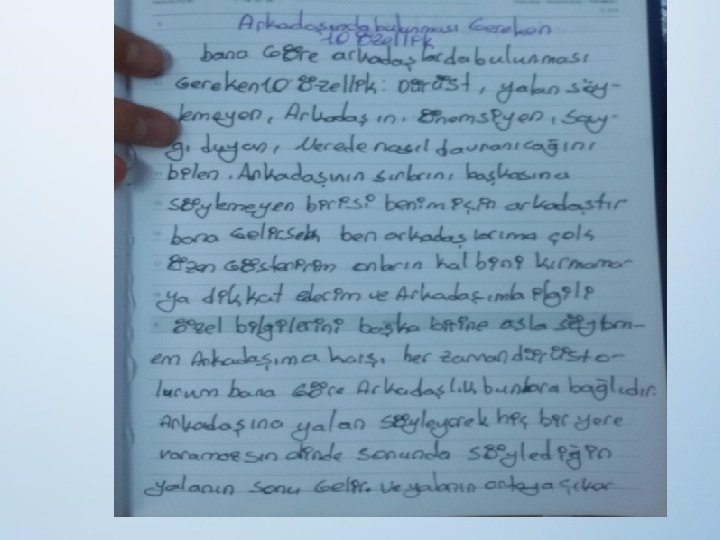 Arkadaşında bulunması Gereken
10 özellik
bana Göre arkadaşlarda bulunması
Gereken 10 özellik: Dürüst, yalan söy-
lemeyen, Arkadaşını, önemsiyen, say-
gı duyan, Nerede nasıl davranıcağını
bilen. Arkadaşının sırlarını başkasına
söylemeyen birisi benim için arkadaştır
bana Gelirsek ben arkadaşlarıma çok
özen Gösteririm onların kalbini kırmama-
ya dikkat ederim ve Arkadaşımla ilgili
özel bilgilerini başka birine asla söylem-
em Arkadaşıma karşı her zaman dürüst o-
lurum bana Göre Arkadaşlık bunlara bağlıdır.
Arkadaşına yalan söyleyerek hiç bir yere
varamazsın sonunda söylediğin
yalanın sonu Gelir. ve yalanın ortaya çıkar